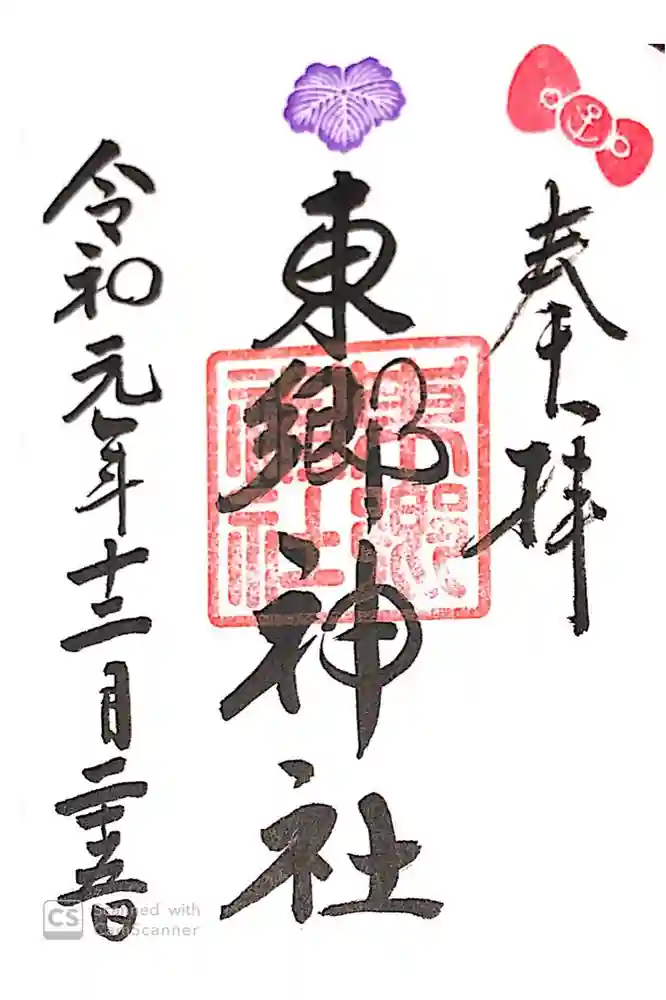 奉拝
東郷神社
東郷
神社
令和元年十二月二十五日
CS
Scanned with
CamScanner